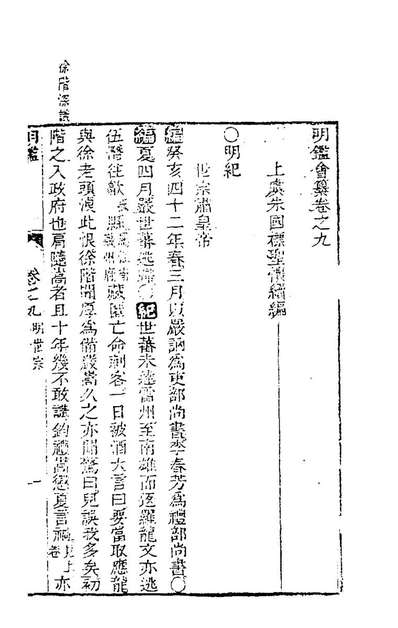 明鑑會纂卷之九
上虞朱國標聖懷續編
○明紀
世宗肅皇帝
編癸亥四十二年春三月以嚴訥為吏部尚書李春芳為禮部尚書○
編夏四月嚴世蕃逃歸○紀世蕃未達雷州至南雄而返羅龍文亦逃
伍潛往歙藏匿亡命刺客一日被酒大言曰要當取應龍
與徐老頭洩此恨徐階聞厚為備嚴嵩久之亦聞驚曰兒誤我多矣初
階之入政府也肩隨嵩者且十年幾不敢講鈞禮嵩懲夏言禍亦
徐階深謀
明鑑
卷之九
明世宗
一